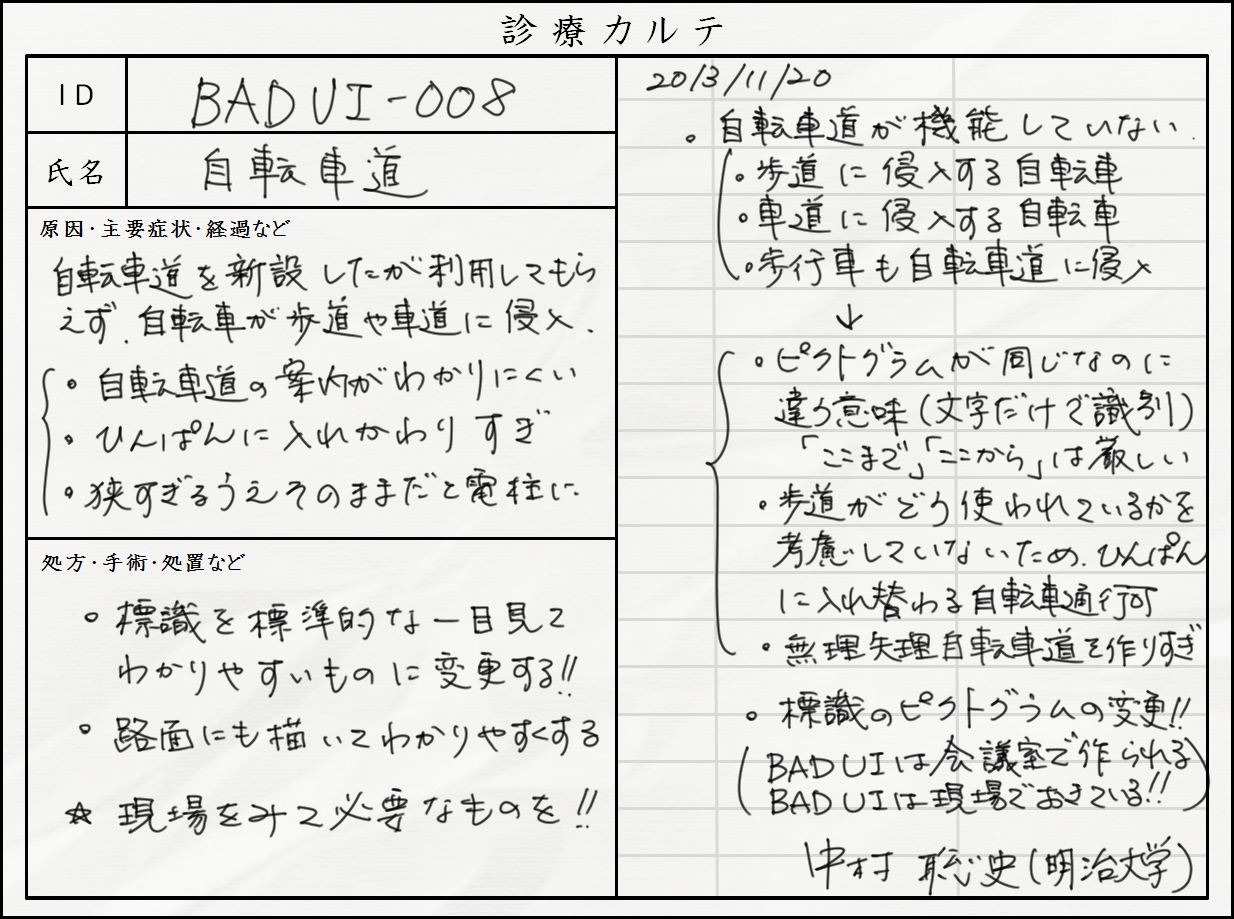 診療カルテ
ID
BADUI-008
氏名
自転車道
原因・主要症状・経過など
自転車道を新設したが利用してもら
えず.自転車が歩道や車道に侵入.
・自転車道の案内がわかりにくい
・ひんぱんに入れかわりすぎ
・狭すぎるうえそのままだと電柱に
処方・手術・処置など
・標識を標準的な一目見て
わかりやすいものに変更する!!
・路面にも描いてわかりやすくする
☆現場をみて必要なものを!!
2013/11/20
・自転車道が機能していない.
・歩道に侵入する自転車
・車道に侵入する自転車
・歩行車も自転車道に侵入
↓
・ピクトグラムが同じなのに
違う意味(文字だけで識別)
「ここまで」「ここから」は厳しい
・歩道がどう使われているかを
考慮していないため.ひんぱん
に入れ替わる自転車通行可
・無理矢理自転車道を作りすぎ
・標識のピクトグラムの変更!!
(BADUIは会議室で作られる
BADUIは現場でおきている!!)
中村聡史(明治大学)